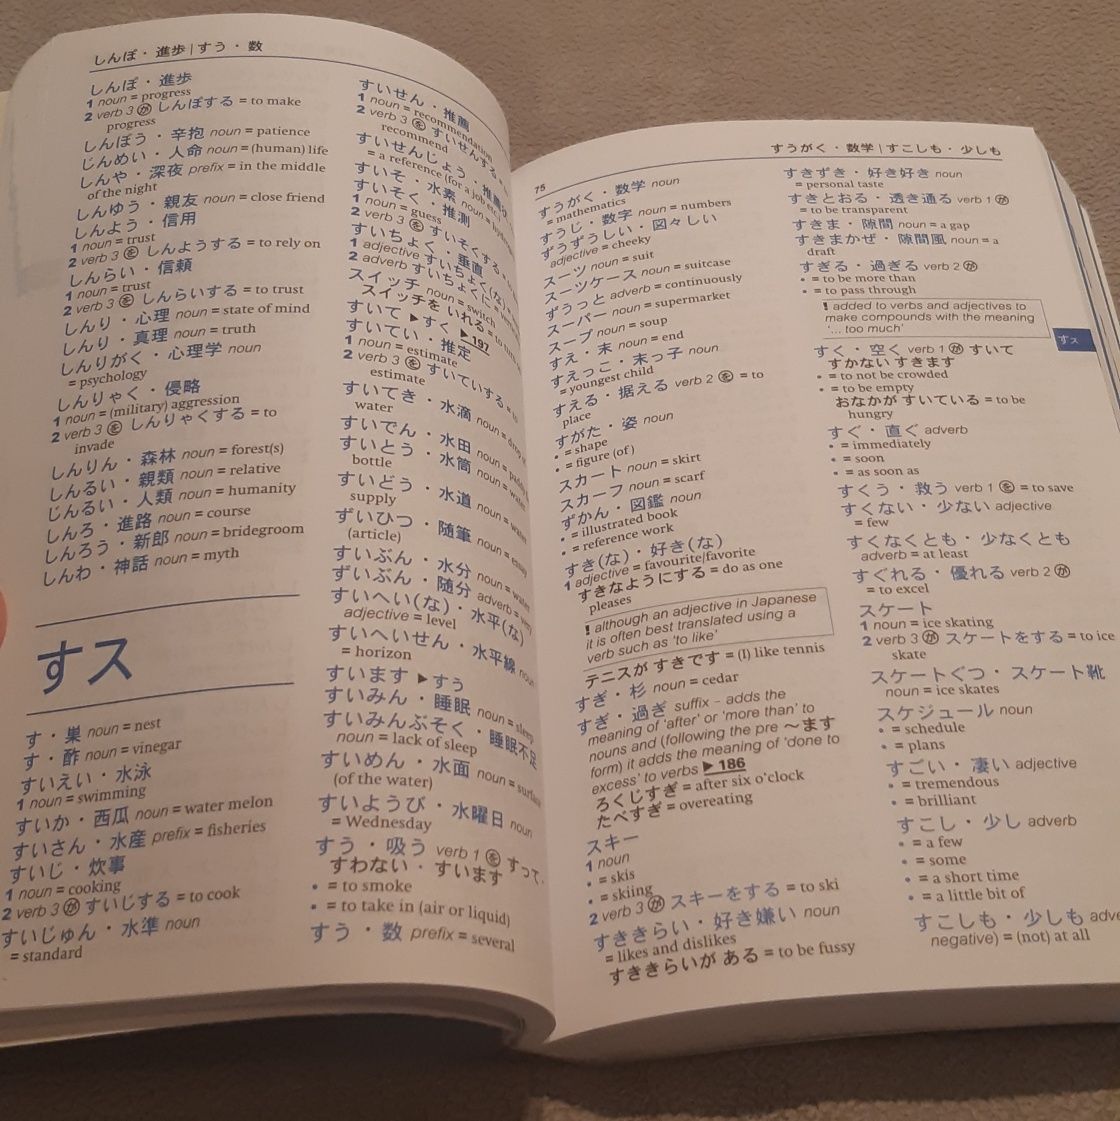 しんぽ・進歩 | すう・数
しんぽ・進歩
1 noun = progress
2 verb 3 が しんぽする = to make
progress
しんぼう・辛抱 noun = patience
じんめい・人命 noun = (human) life
しんや・深夜 prefix = in the middle
of the night
しんゆう・親友 noun = close friend
しんよう・信用
1 noun = trust
2 verb 3 を しんようする = to rely on
しんらい・信頼
1 noun = trust
2 verb 3 を しんらいする = to trust
しんり・心理 noun = state of mind
しんり・真理 noun = truth
しんりがく・心理学 noun
= psychology
しんりゃく・侵略
1 noun = (military) aggression
2 verb 3 を しんりゃくする = to
invade
しんりん・森林 noun = forest(s)
しんるい・親類 noun = relative
じんるい・人類 noun = humanity
しんろ・進路 noun = course
しんろう・新郎 noun = bridegroom
しんわ・神話 noun = myth
すス
す・巣 noun = nest
す・酢 noun = vinegar
すいえい・水泳
1 noun = swimming
すいか・西瓜 noun = water melon
すいさん・水産 prefix = fisheries
すいじ・炊事
1 noun = cooking
2 verb 3 が すいじする = to cook
すいじゅん・水準 noun
= standard
すいせん・推薦
1 noun = recommendation
2 verb 3 を すいせんする
recommend
すいせんじょう・推薦
= a reference (for a job etc.)
すいそ・水素 noun
すいそく・推測
1 noun = guess
2 verb 3 を すいそくする
すいちょく・垂直
1 adjective すいちょく(な)
2 adverb すいちょくに
スイッチ noun = switch
スイッチを いれる = to
すいて ▶すく ▶197
すいてい・推定
1 noun = estimate
2 verb 3 を すいていする = to
estimate
すいてき・水滴 noun = drop of
water
すいでん・水田 noun =
すいとう・水筒 noun = water
bottle
すいどう・水道 noun = water
supply
ずいひつ・随筆 noun = essay
(article)
すいぶん・水分 noun = water
ずいぶん・随分 adverb = very
すいへい(な)・水平(な)
adjective = level
すいへいせん・水平線 noun
= horizon
すいます ▶すう
すいみん・睡眠 noun = sleep
すいみんぶそく・睡眠不足
noun = lack of sleep
すいめん・水面 noun = surface
(of the water)
すいようび・水曜日 noun
= Wednesday
すう・吸う verb 1 を すって・
すわない・すいます
• = to smoke
• = to take in (air or liquid)
すう・数 prefix = several
75
すうがく・数学 | すこしも・少しも
すうがく・数学 noun
= mathematics
すうじ・数字 noun = numbers
ずうずうしい・図々しい
adjective = cheeky
スーツ noun = suit
スーツケース noun = suitcase
ずうっと adverb = continuously
スーパー noun = supermarket
スープ noun = soup
すえ・末 noun = end
すえっこ・末っ子 noun
= youngest child
すえる・据える verb 2 を = to
place
すがた・姿 noun
• = shape
• = figure (of)
スカート noun = skirt
スカーフ noun = scarf
ずかん・図鑑 noun
• = illustrated book
• = reference work
すき(な)・好き(な)
1 adjective = favourite/favorite
すきなようにする = do as one
pleases
! although an adjective in Japanese
it is often best translated using a
verb such as 'to like'
テニスが すきです = (I) like tennis
すぎ・杉 noun = cedar
すぎ・過ぎ suffix – adds the
meaning of 'after' or 'more than' to
nouns and (following the pre 〜ます
form) it adds the meaning of 'done to
excess' to verbs ▶186
ろくじすぎ = after six o'clock
たべすぎ = overeating
スキー
1 noun
• = skis
• = skiing
2 verb 3 が スキーをする = to ski
すききらい・好き嫌い noun
= likes and dislikes
すききらいが ある = to be fussy
すきずき・好き好き noun
= personal taste
すきとおる・透き通る verb 1 が
= to be transparent
すきま・隙間 noun = a gap
すきまかぜ・隙間風 noun = a
draft
すぎる・過ぎる verb 2 が
• = to be more than
• = to pass through
! added to verbs and adjectives to
make compounds with the meaning
'... too much'
すス
すく・空く verb 1 が すいて
すかない すきます
• = to not be crowded
• = to be empty
おなかが すいている = to be
hungry
すぐ・直ぐ adverb
• = immediately
• = soon
• = as soon as
すくう・救う verb 1 を = to save
すくない・少ない adjective
= few
すくなくとも・少なくとも
adverb = at least
すぐれる・優れる verb 2 が
= to excel
スケート
1 noun = ice skating
2 verb 3 が スケートをする = to ice
skate
スケートぐつ・スケート靴
noun = ice skates
スケジュール noun
• = schedule
• = plans
すごい・凄い adjective
• = tremendous
• = brilliant
すこし・少し adverb
• = a few
• = some
• = a short time
• = a little bit of
すこしも・少しも adve
negative) = (not) at all